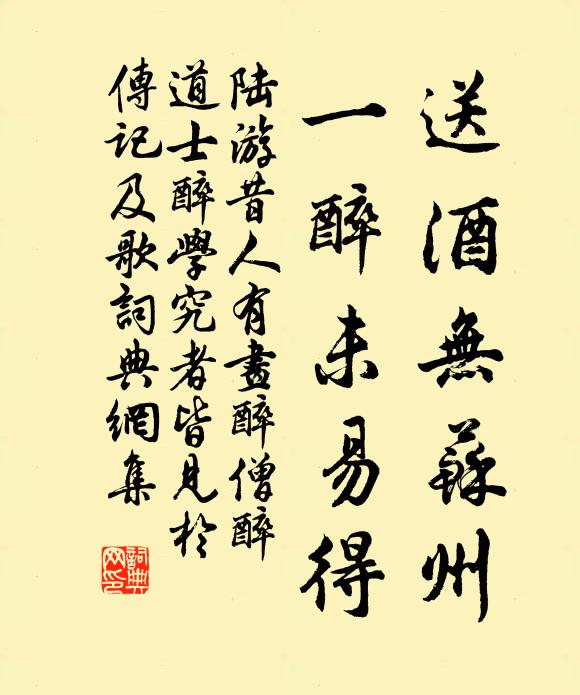 送酒無蘇州
一醉未易得
陆游昔人有畫醉僧醉
道士醉學究者皆見於
傳記及歌詞典網集
詞典网印